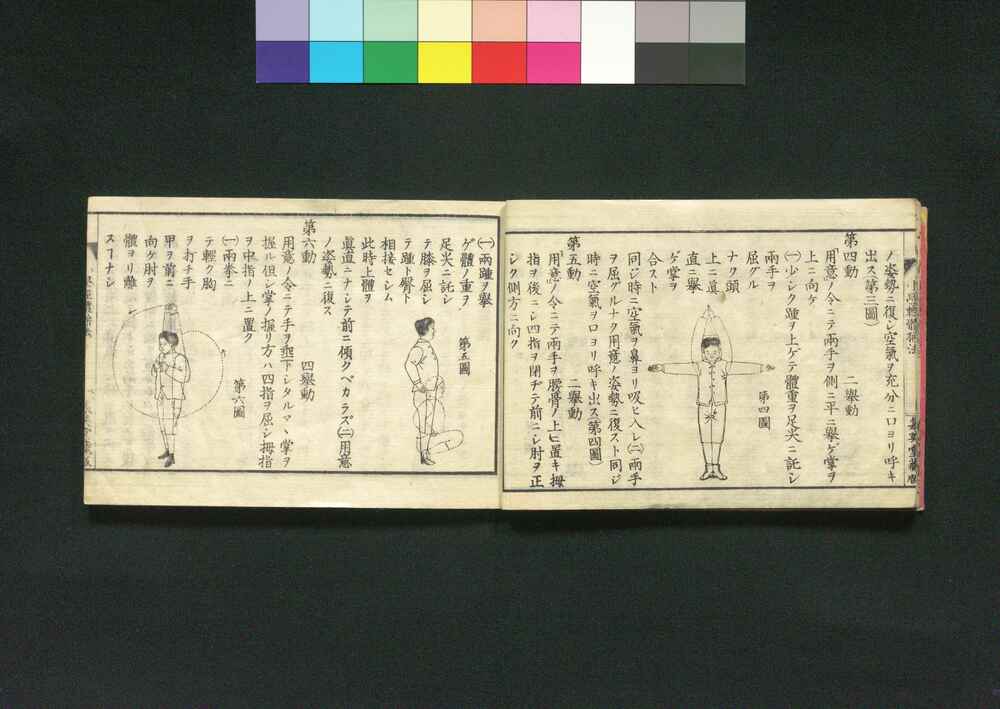 ノ姿勢ニ復シ空氣ヲ充分ニ口ヨリ呼キ
出ス(第三圖)
第四動 二擧動
「用意」ノ令ニテ兩手ヲ側ニ平ニ擧ゲ掌ヲ
上ニ向ケ
(一)少シク踵ヲ上ゲテ體重ヲ足尖ニ託シ
兩手ヲ
屈グル
ナク頭
上ニ眞
直ニ擧
ゲ掌ヲ
合スト
第四圖
同ジ時ニ空氣ヲ鼻ヨリ吸ヒ入レ(二)兩手
ヲ屈グルナク用意ノ姿勢ニ復スト同ジ
時ニ空氣ヲ口ヨリ呼キ出ス(第四圖)
第五動 二擧動
「用意」ノ令ニテ兩手ヲ腰骨ノ上ニ置キ拇
指ヲ後ニシ四指ヲ閉ヂテ前ニシ肘ヲ正
シク側方ニ向ク
(一)兩踵ヲ擧
ゲ體ノ重ヲ
足尖ニ託シ
テ膝ヲ屈シ
テ踵ト臀ト
相接セシム
此時上體ヲ
第五圖
眞直ニナシテ前ニ傾クベカラズ(二)用意
ノ姿勢ニ復ス
第六動 四擧動
用意ノ令ニテ手ヲ垂下シタルマヽ掌ヲ
握ル但シ掌ノ握リ方ハ四指ヲ屈シ拇指
ヲ中指ノ上ニ置ク
第六圖
(一)兩拳ニ
テ輕ク胸
ヲ打チ手
甲ヲ前ニ
向ケ肘ヲ
體ヨリ離
スコナシ